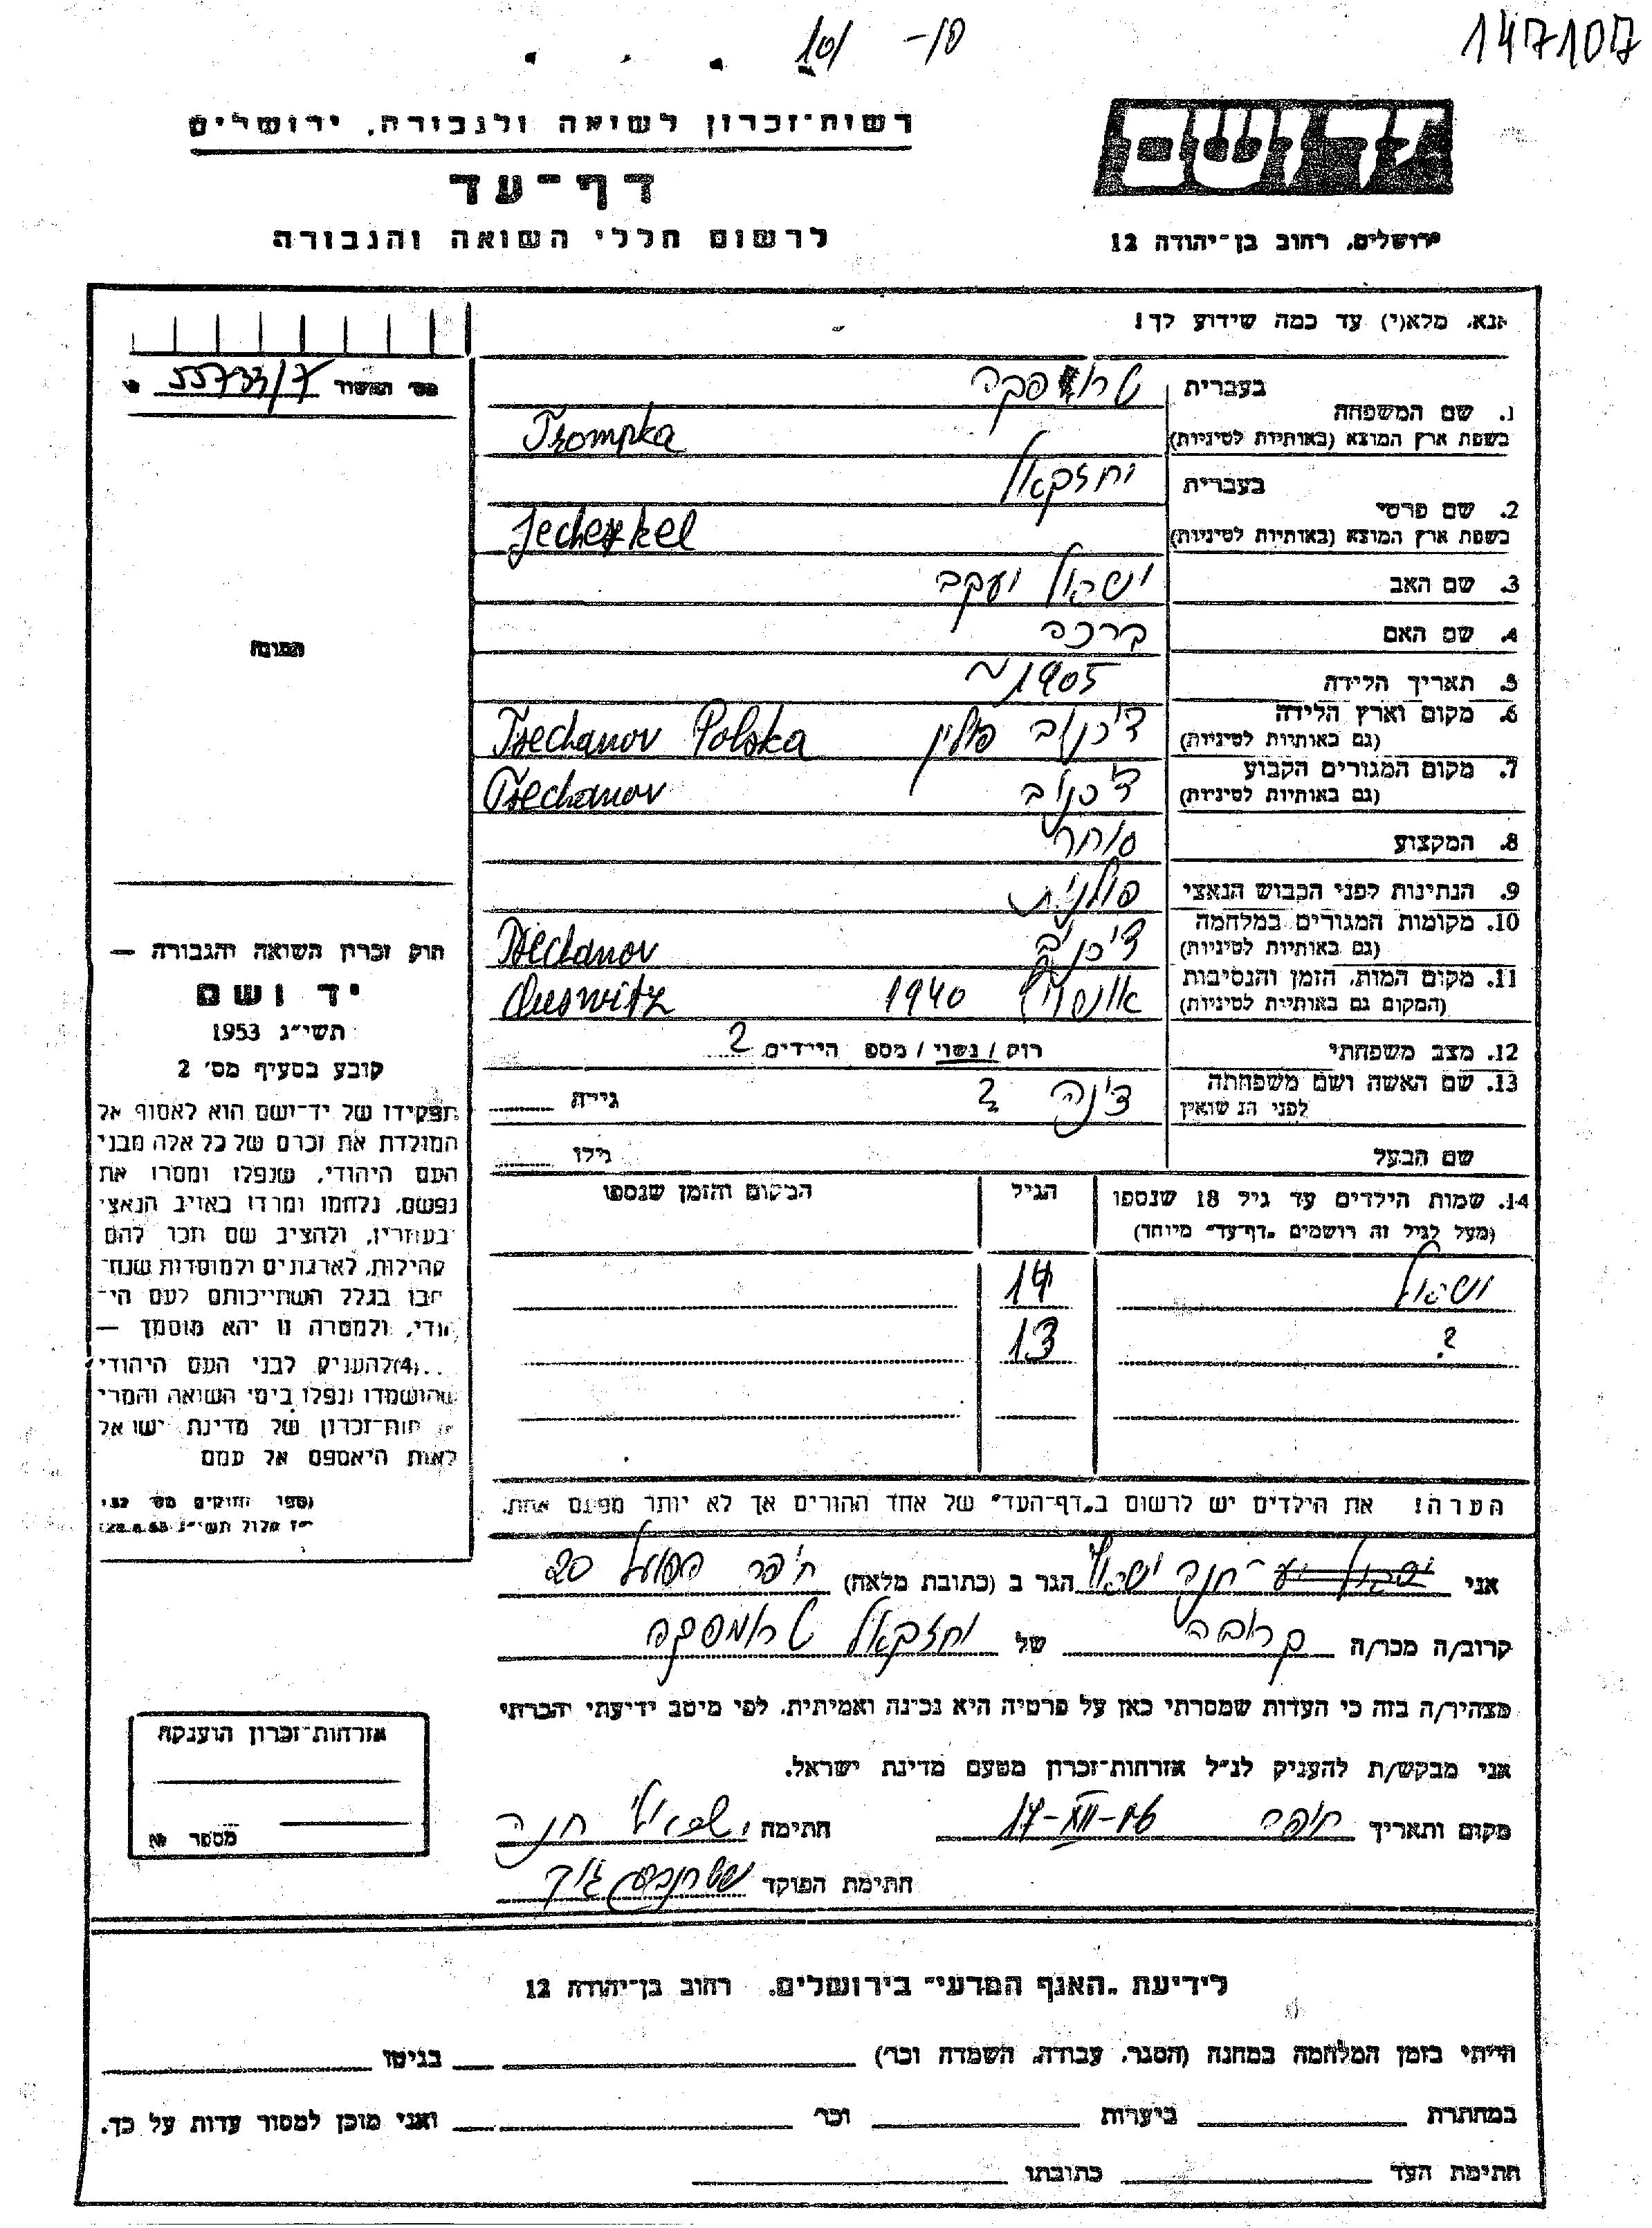 147107
רשות־זכרון לשואה ולגבורה, ירושלים
דף־עד
לרשום חללי השואה והגבורה
ירושלים, רחוב בן־יהודה 12
אנא, מלא(י) עד כמה שידוע לך!
55733/7
1. שם המשפחה
בעברית
Trompka
בשפת ארץ המוצא (באותיות לטיניות)
2. שם פרטי
בעברית יחזקאל
Jechezkel
בשפת ארץ המוצא (באותיות לטיניות)
3. שם האב ישראל יעקב
4. שם האם ברכה
5. תאריך הלידה 1905
6. מקום וארץ הלידה
(גם באותיות לטיניות) צ'כנוב פולין Tsechanov Polska
7. מקום המגורים הקבוע
(גם באותיות לטיניות) צ'כנוב Tsechanov
8. המקצוע סוחר
9. הנתינות לפני הכבוש הנאצי פולנית
10. מקומות המגורים במלחמה
(גם באותיות לטיניות) צ'כנוב Tsechanov
11. מקום המות, הזמן והנסיבות
(המקום גם באותיות לטיניות) 1940 Auswitz
12. מצב משפחתי רווק / נשוי / מספר הילדים 2
13. שם האשה ושם משפחתה
לפני הנשואין דינה ? גילה
שם הבעל גילו
14. שמות הילדים עד גיל 18 שנספו
(מעל לגיל זה רושמים "דף־עד" מיוחד)
הגיל
המקום והזמן שנספו
ישראל 14
? 13
הערה! את הילדים יש לרשום ב"דף־העד" של אחד ההורים אך לא יותר מפעם אחת.
התמונה
חוק זכרון השואה והגבורה —
יד ושם
תשי״ג 1953
קובע בסעיף מס׳ 2
תפקידו של יד־ושם הוא לאסוף אל
המולדת את זכרם של כל אלה מבני
העם היהודי, שנפלו ומסרו את
נפשם, נלחמו ומרדו באויב הנאצי
ובעוזריו, ולהציב שם וזכר להם
לקהילות, לארגונים ולמוסדות שנח־
רבו בגלל השתייכותם לעם הי־
הודי, ולמטרה זו יהא מוסמך —
...(4) להעניק לבני העם היהודי
שהושמדו ונפלו בימי השואה והמרי
אזרחות־זכרון של מדינת ישראל
לאות היאספם אל עמם
אני חנה ישראלי הגר ב (כתובת מלאה) חיפה הפועל 20
קרוב/ה מכר/ה קרובה של יחזקאל טראמפקה
מצהיר/ה בזה כי העדות שמסרתי כאן על פרטיה היא נכונה ואמיתית, לפי מיטב ידיעתי והכרתי
אני מבקש/ת להעניק לנ״ל אזרחות־זכרון מטעם מדינת ישראל.
מקום ותאריך חיפה חתימה ישראלי חנה
חתימת הפוקד
אזרחות־זכרון הוענקה
מספר №
לידיעת "האגף המדעי" בירושלים, רחוב בן־יהודה 12
הייתי בזמן המלחמה במחנה (הסגר, עבודה, השמדה וכו׳) בגיטו
במחתרת ביערות וכו׳ ואני מוכן למסור עדות על כך.
חתימת העד כתובתו